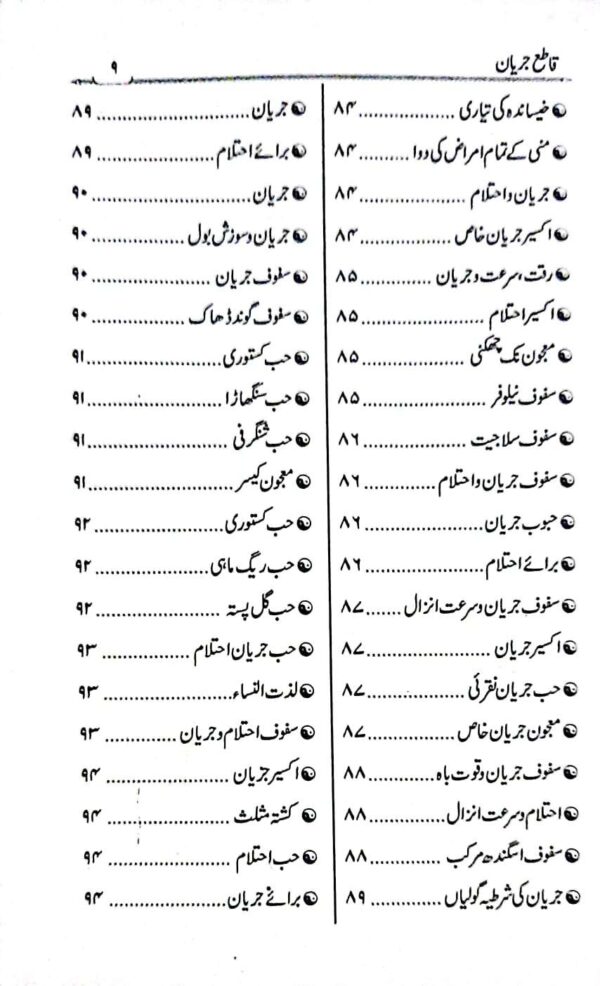 قاطع جریان ۹
خیساندہ کی تیاری .................. ۸۴
منی کے تمام امراض کی دوا .......... ۸۴
جریان و احتلام .................... ۸۴
اکسیر جریان خاص .................. ۸۴
رقت، سرعت و جریان .............. ۸۵
اکسیر احتلام ...................... ۸۵
معجون نک چھکنی .................. ۸۵
سفوف نیلوفر ...................... ۸۵
سفوف سلاجیت .................... ۸۶
سفوف جریان و احتلام ............. ۸۶
حبوب جریان ...................... ۸۶
برائے احتلام ...................... ۸۶
سفوف جریان و سرعت انزال ....... ۸۷
اکسیر جریان ...................... ۸۷
حب جریان نقرئی .................. ۸۷
معجون جریان خاص ................ ۸۷
سفوف جریان و قوت باہ ............ ۸۸
احتلام و سرعت انزال .............. ۸۸
سفوف اسگندھ مرکب .............. ۸۸
جریان کی شرطیہ گولیاں ............ ۸۹
جریان ............................ ۸۹
برائے احتلام ...................... ۸۹
جریان ............................ ۹۰
جریان و سوزش بول ................ ۹۰
سفوف جریان ...................... ۹۰
سفوف گوند ڈھاک .................. ۹۰
حب کستوری ...................... ۹۱
حب سنگھاڑا ...................... ۹۱
حب شنگرفی ...................... ۹۱
معجون کیسر ...................... ۹۱
حب کستوری ...................... ۹۲
حب ریگ ماہی .................... ۹۲
حب گل پستہ ...................... ۹۲
حب جریان احتلام ................ ۹۳
لذت النساء ...................... ۹۳
سفوف احتلام و جریان ............ ۹۳
اکسیر جریان ...................... ۹۴
کشتہ مثلث ...................... ۹۴
حب احتلام ...................... ۹۴
برائے جریان ...................... ۹۴